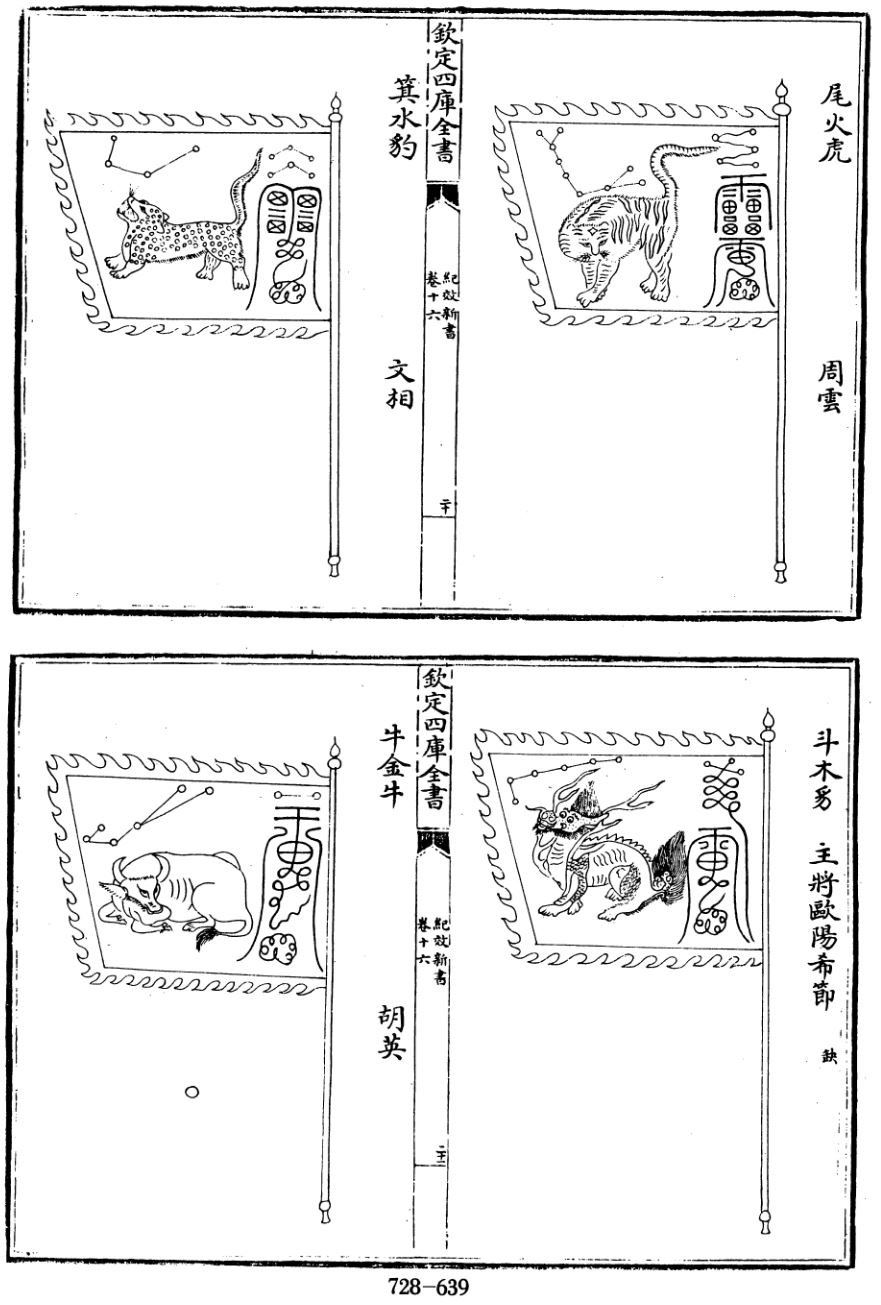 尾火虎
周雲
欽定四庫全書
紀效新書
卷十六
二十
箕水豹
文相
斗木豸 主將歐陽希節 缺
欽定四庫全書
紀效新書
卷十六
二十一
牛金牛
胡英
728-639